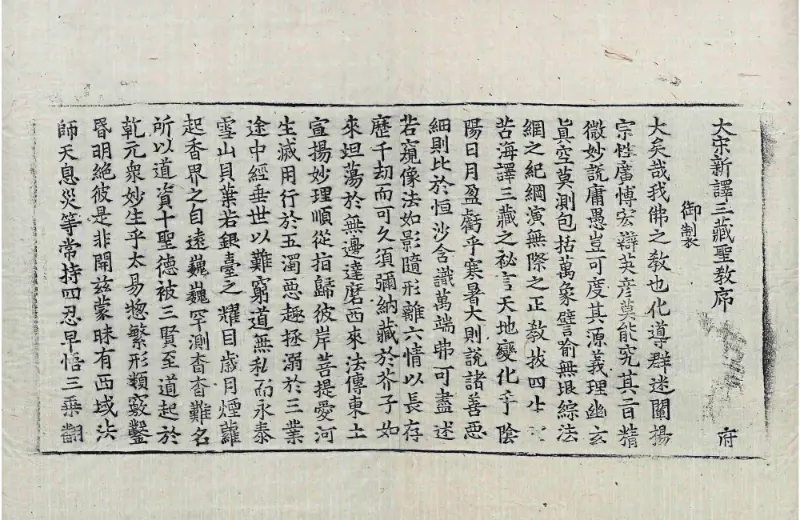 大宋新譯三藏聖教序 府
御制
大矣哉我佛之教也化導群迷闡揚
宗性廣博宏辯英彦莫能究其旨精
微妙說庸愚豈可度其源義理幽玄
眞空莫測包括萬象譬喻無垠綜法
網之紀綱演無際之正教拔四生
苦海譯三藏之秘言天地變化乎陰
陽日月盈虧乎寒暑大則說諸善惡
細則比於恒沙含識萬端弗可盡述
若窺像法如影隨形離六情以長存
歷千劫而可久須彌納藏於芥子如
來坦蕩於無邊達磨西來法傳東土
宣揚妙理順從指歸彼岸菩提愛河
生滅用行於五濁惡趣拯溺於三業
途中經垂世以難窮道無私而永泰
雪山貝葉若銀臺之耀目歲月煙蘿
起香界之自遠巍巍罕測杳杳難名
所以道資十聖德被三賢至道起於
乾元衆妙生乎太易惣繁形類竅鑿
昏明絕彼是非開茲蒙昧有西域法
師天息災等常持四忍早悟三乘翻